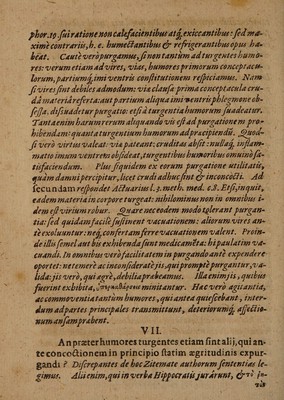 phor.19. sui ratione non calefacientibus atq; exiccantibus: sed ma-
ximè contrariis, h. e. humectantibus & refrigerantibus opus ha-
beat. Cautè verò purgamus, si non tantùm ad turgentes humo-
res: verum etiam ad vires, vias, humores primorum conceptacu-
lorum, partiumq; imi ventris constitutionem respiciamus. Nam
si vires sint debiles admodum: via clausæ: prima conceptacula cru-
dâ materiâ referta: aut partium aliqua imi ventris phlegmone ob-
sessa. dissuadetur purgatio: etsi â turgentia humorum suadeatur.
Tanta enim harum rerum aliquando vis est ad purgationem pro-
hibendam: quanta turgentium humorum ad præcipiendũ. Quod-
si verò virtus valeat: via pateant: cruditas absit: nullaq; inflam-
matio imum ventrem obsideat, turgentibus humoribus omnino sa-
tisfaciendum. Plus siquidem ex eorum purgatione utilitatis,
quàm damni percipitur, licet crudi adhuc sint & inconcocti. Ad
secundam respondet Actuarius l. 3. meth. med. c. 8. Etsi, inquit,
eadem materia in corpore turgeat: nihilominus non in omnibus i-
dem est virium robur. Quare nec eodem modo tolerant purgan-
tia: sed quidam facilè sustinent vacuationem: alterum vires an-
te exoluuntur: neq; confertam ferre vacuationem valent. Proin-
de illis semel aut bis exhibenda sunt medicamẽta: hi paulatim va-
cuandi. In omnibus verò facilitatem in purgando antè expendere
oportet: ne temerè ac inconsideratè jis, qui promptè purgantur, va-
lida: jis verò, qui ægrè, debilia præbeamus. Illa enim jis, quibus
fuerint exhibita, minitantur. Hac verò agitantia,
ac commoventia tantùm humores, qui antea quiescebant, inter-
dum ad partes principales transmittunt, deteriorumq; affectio-
num ansam præbent.
VII.
An præter humores turgentes etiam sint alij, qui an-
te concoctionem in principio statim ægritudinis expur-
gandi? Discrepantes de hoc Zitemate authorum sententias le-
gimus. Alii enim, qui in verba Hippocratis jurârunt, &